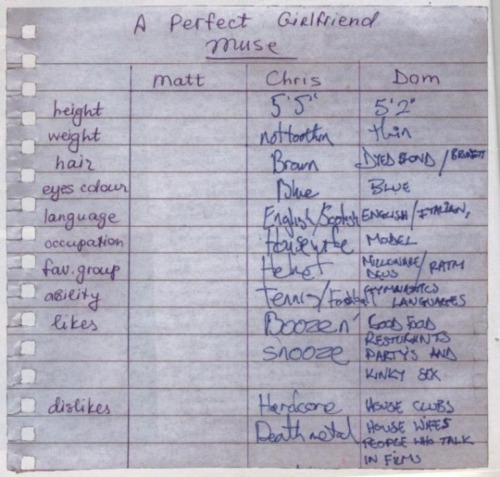 A Perfect Girlfriend
Muse
Matt Chris Dom
height 5'5" 5'2"
weight not too thin thin
hair Brown DYED BOND / BRUNETT
eyes colour Blue BLUE
language English/Scotish ENGLISH / ITALIAN,
occupation Housewife MODEL
fav. group Helmet MILLIONAIRE / RATM
DEUS
ability Tennis/Football GYMNASTICS
LANGUAGES
likes Booze n' GOOD FOOD
Snooze RESTURANTS
PARTYS AND
KINKY SEX
dislikes Hardcore HOUSE CLUBS
Death metal HOUSE WIFES
PEOPLE WHO TALK
IN FILMS